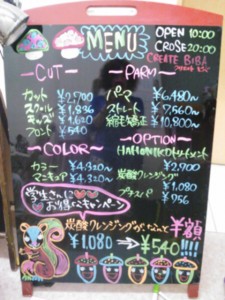 MENU
OPEN 10:00
CROSE 20:00
CREATE BIBA
~CUT~
カット ¥2,700
スクール ¥1,836
キッズ ¥1,620
フロント ¥540
~PARM~
パーマ ¥6,480~
ストレート ¥7,560~
縮毛矯正 ¥10,800~
~COLOR~
カラー ¥4,320~
マニキュア ¥4,320~
~OPTION~
トリートメント
¥2,900
炭酸クレンジング
¥1,080
プラスパ ¥756
学生さんに
お得なキャンペーン
炭酸クレンジングがなんと半額
¥1,080 → ¥540!!!!